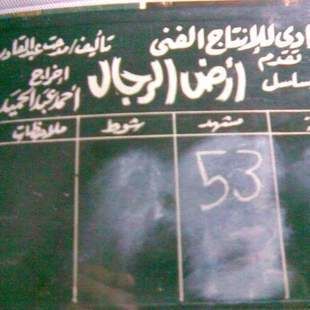 ادى للإنتاج الفنى
تقدم
سلسل
أرض الرجال
تأليف/
اخراج
أحمد عبد الحميد
مشهد شوط ملاحظات
53